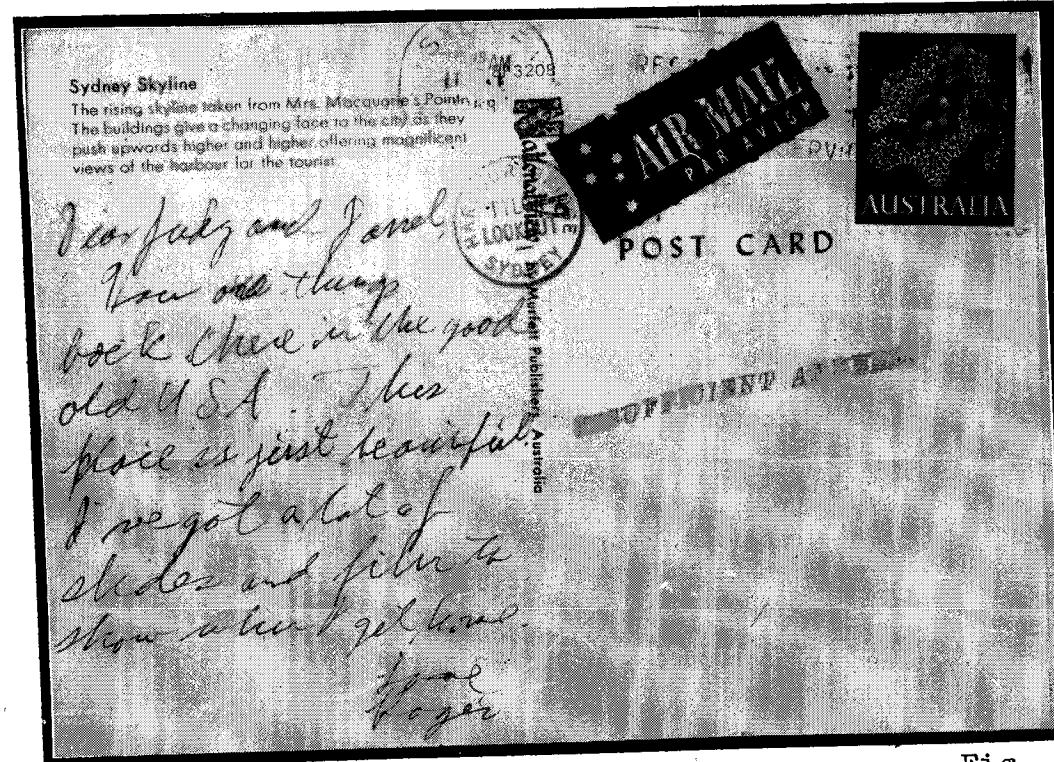 Sydney Skyline
The rising skyline taken from Mrs. Macquarie's Point.
The buildings give a changing face to the city as they
push upwards higher and higher offering magnificent
views of the harbour for the tourist.
AM
3208
AIR MAIL
PAR AVION
AUSTRALIA
POST CARD
SYDNEY
Murfett Publishers, Australia
Dear Judy and Janel,
How are things
back there in the good
old USA. This
place is just beautiful.
I've got a lot of
slides and film to
show when I get home.
Love
Roger
Fig